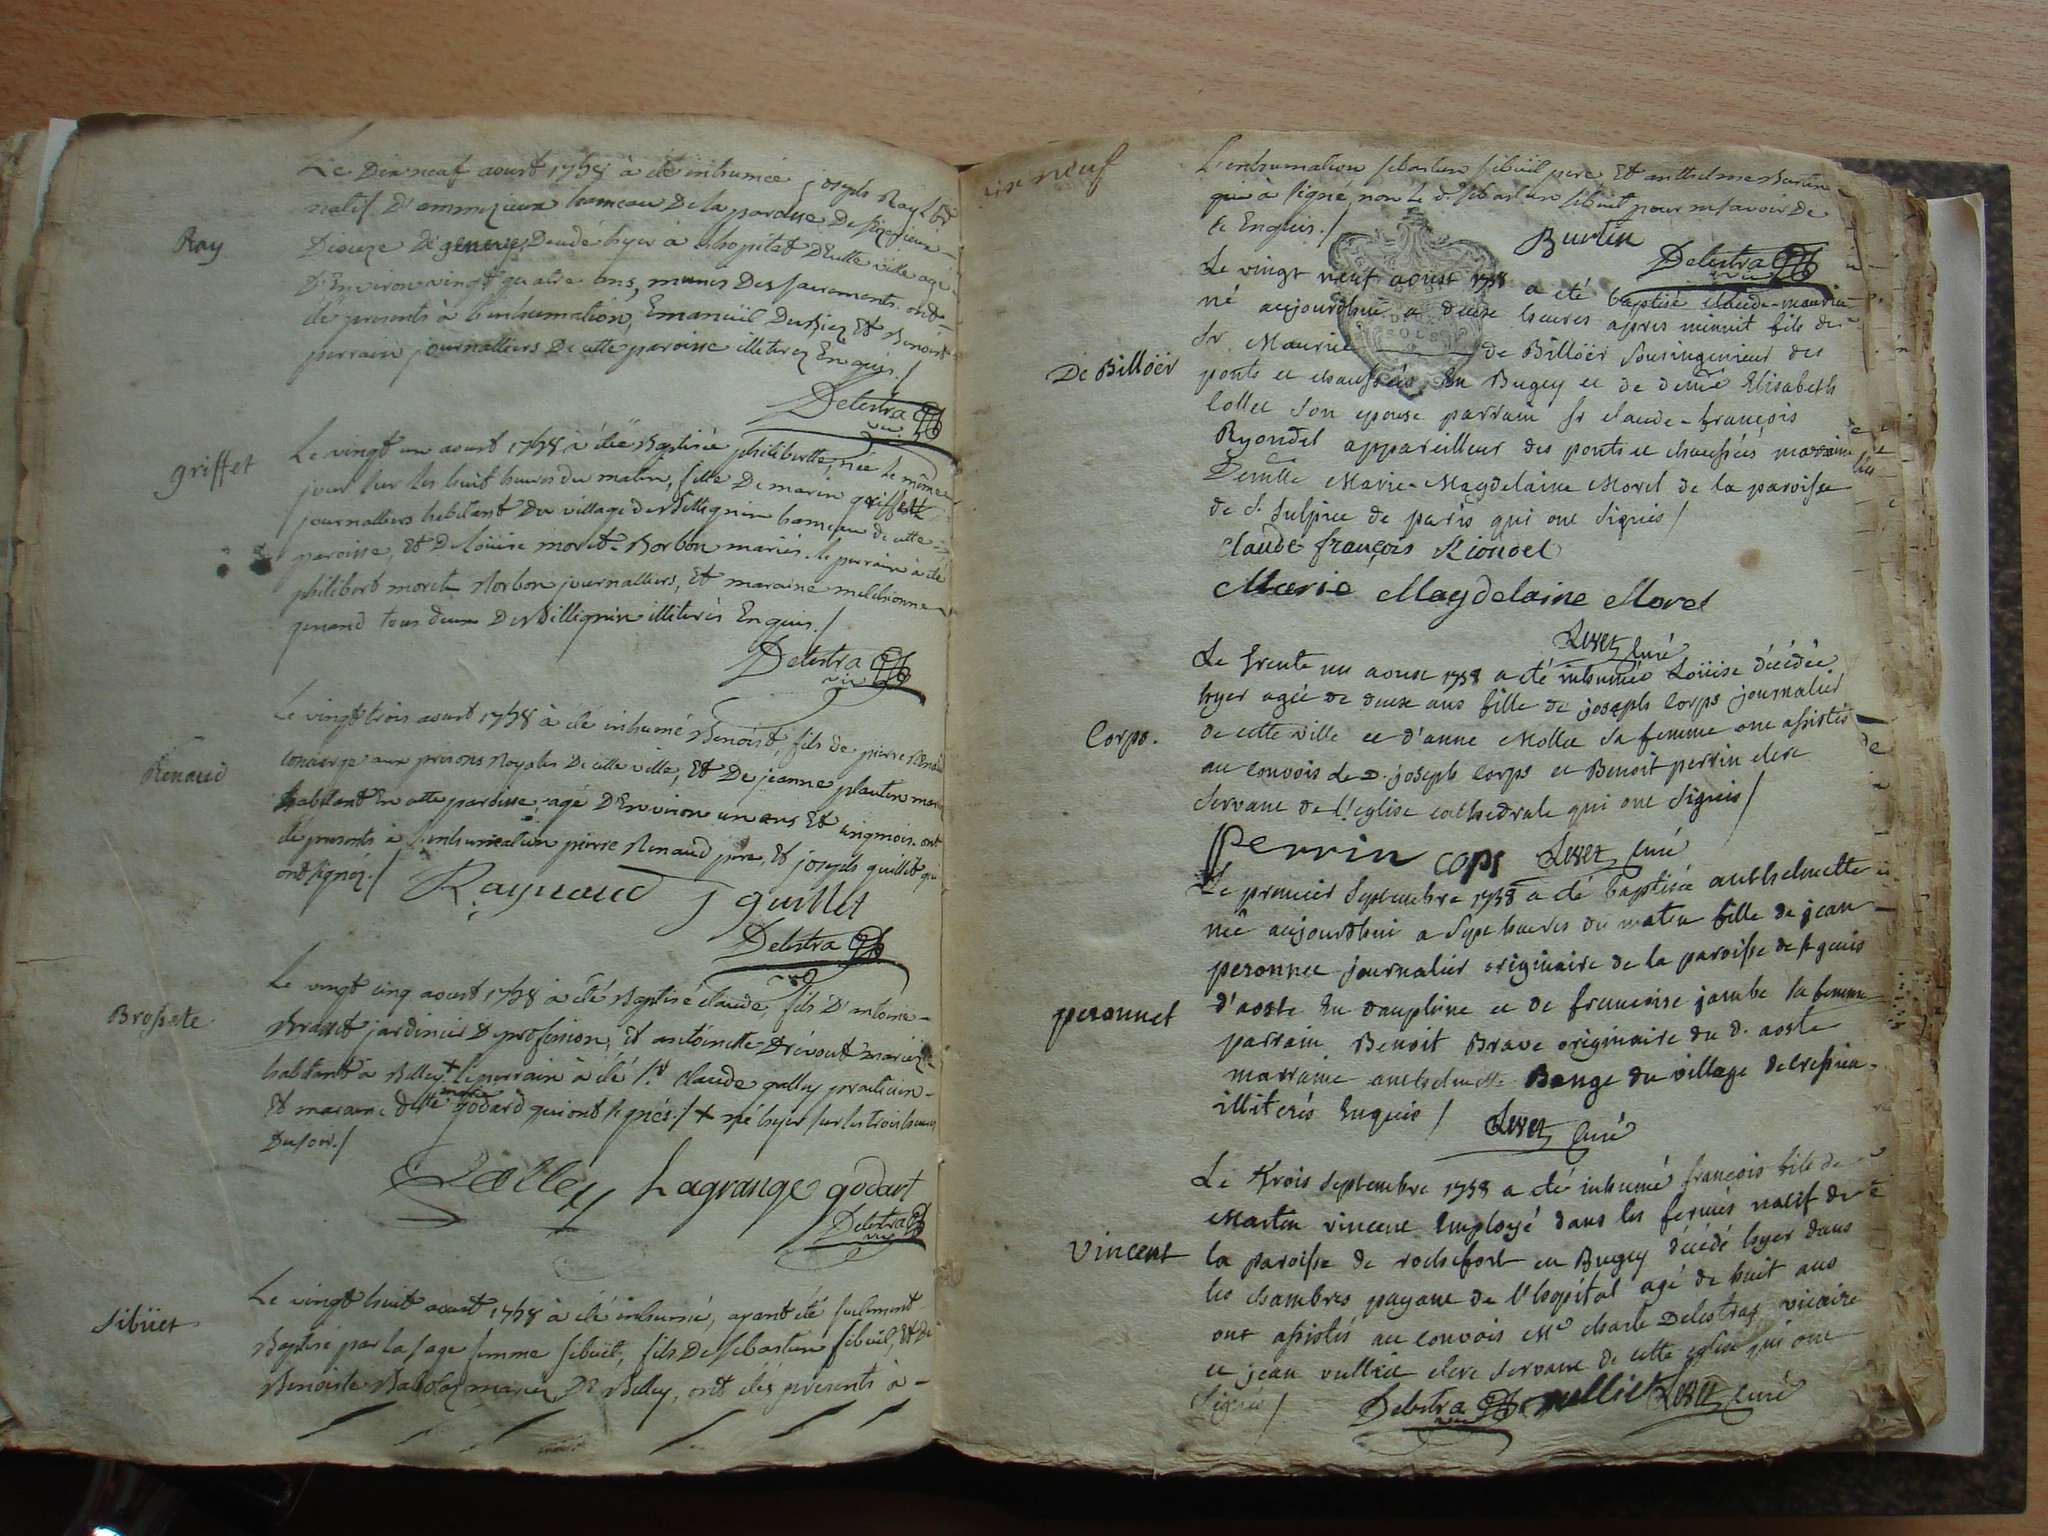 Ray
Le Dix neuf aoust 1758 à été inhumée joseph Ray
natif D'ammezieux hameau De la paroisse De
Dioceze De geneve, Decedé hyer à l'hopital D'cette ville agé
D'Environ vingt quatre ans, munis Des sacrements. ont
été presents à l'inhumation, Emanuël Durriez Et Benoist
perrain journalliers De cette paroisse illiterez Enquis./
Delestra
vic.
griffet
Le vingt un aoust 1758 à été Baptisée philiberte, née Le même
jour sur les huit heures du matin, fille De marin griffet
journalliers habitant Du village De Billignin hameau de cette
paroisse, Et De Loüise moret-Borbon mariés. le parrain à été
philibert moret Borbon journalliers, Et maraine melchionne
genand tous deux De Billignin illiterés Enquis./
Delestra
vic
Renaud
Le vingt trois aoust 1758 à été inhumé Benoist, fils de pierre Renaud
concierge aux prisons Royales De cette ville, Et De jeanne plantin mariés
habitant En cette paroisse, agé D'Environ un ans Et cinq mois. ont
été presents à l'inhumation pierre Renaud pere, Et joseph guillet qui
ont signéz./
Raynaud j guillet
Delestra
vic
Brossete
Le vingt cinq aoust 1758 à été Baptisé claude, fils D'antoine
Brasset jardinier De profession, Et antoinette Drevout mariez
habitant à Belley + le parrain à été Sr claude galley praticien
Et maraine delle marie godard qui ont signés./ + né hyer sur les trois heures
Du soir./
Galley Lagrange godart
Delestra
vic
Sibüet
Le vingt huit aoust 1758 à été inhumé, ayant été seulement
Baptisé par la sage femme Sibüet, fils De Sebastien Sibüet, Et de
Benoiste Babolaz mariez De Belley, ont étés presents à
dix neuf
L'inhumation Sebastien Sibüet pere Et anthelme Burtin
qui à signé, non le d. Sebastien Sibuet pour ne savoir De
ce Enquis./
Burtin
Delestra
vic
De Billöër
Le vingt neuf aoust 1758 a été baptisé claude-maurice
né aujourdhui a deux heures apres minuit fils de
Sr Maurice de Billöër Sousingenieur des
ponts et chaussées En Bugey et de demlle Elisabeth
Collet Son epouse parrain Sr claude-françois
Ryondel appareilleur des ponts et chaussées marraine
Demlle Marie-Magdelaine Morel de la paroisse
de St Sulpice de paris qui ont Signés/
claude françois Riondel
Marie Magdelaine Morel
Levet curé
Corps.
Le trente un aoust 1758 a été inhumée Loüise décédée
hyer agée de deux ans fille de joseph Corps journalier
de cette ville et d'anne Mollet Sa femme ont assistés
au convois le d. joseph Corps et Benoit perrin clerc
Servant de l'eglise cathedrale qui ont Signés/
Perrin cops Levet curé
peronnet
Le premier Septembre 1758 a été baptisée anthelmette
née aujourdhui a Sept heures du matin fille de jean
peronnet journalier originaire de la paroisse de St genis
d'aoste En dauphine et de francoise jambe Sa femme
parrain Benoit Brave originaire du d. aoste
marraine anthelmette Bange du village de cressieu
illiterés Enquis/
Levet curé
Vincent
Le trois Septembre 1758 a été inhumé françois fils de
Martin vincent Employé dans les fermes natif de
la paroisse de rochefort en Bugey décédé hyer dans
les chambres payant de l'hopital agé de huit ans
ont assistés au convois Mre charle Delestraz vicaire
et jean vulliet clerc Servant de cette eglise qui ont
Signés/
Delestra vulliet Levet curé
vic